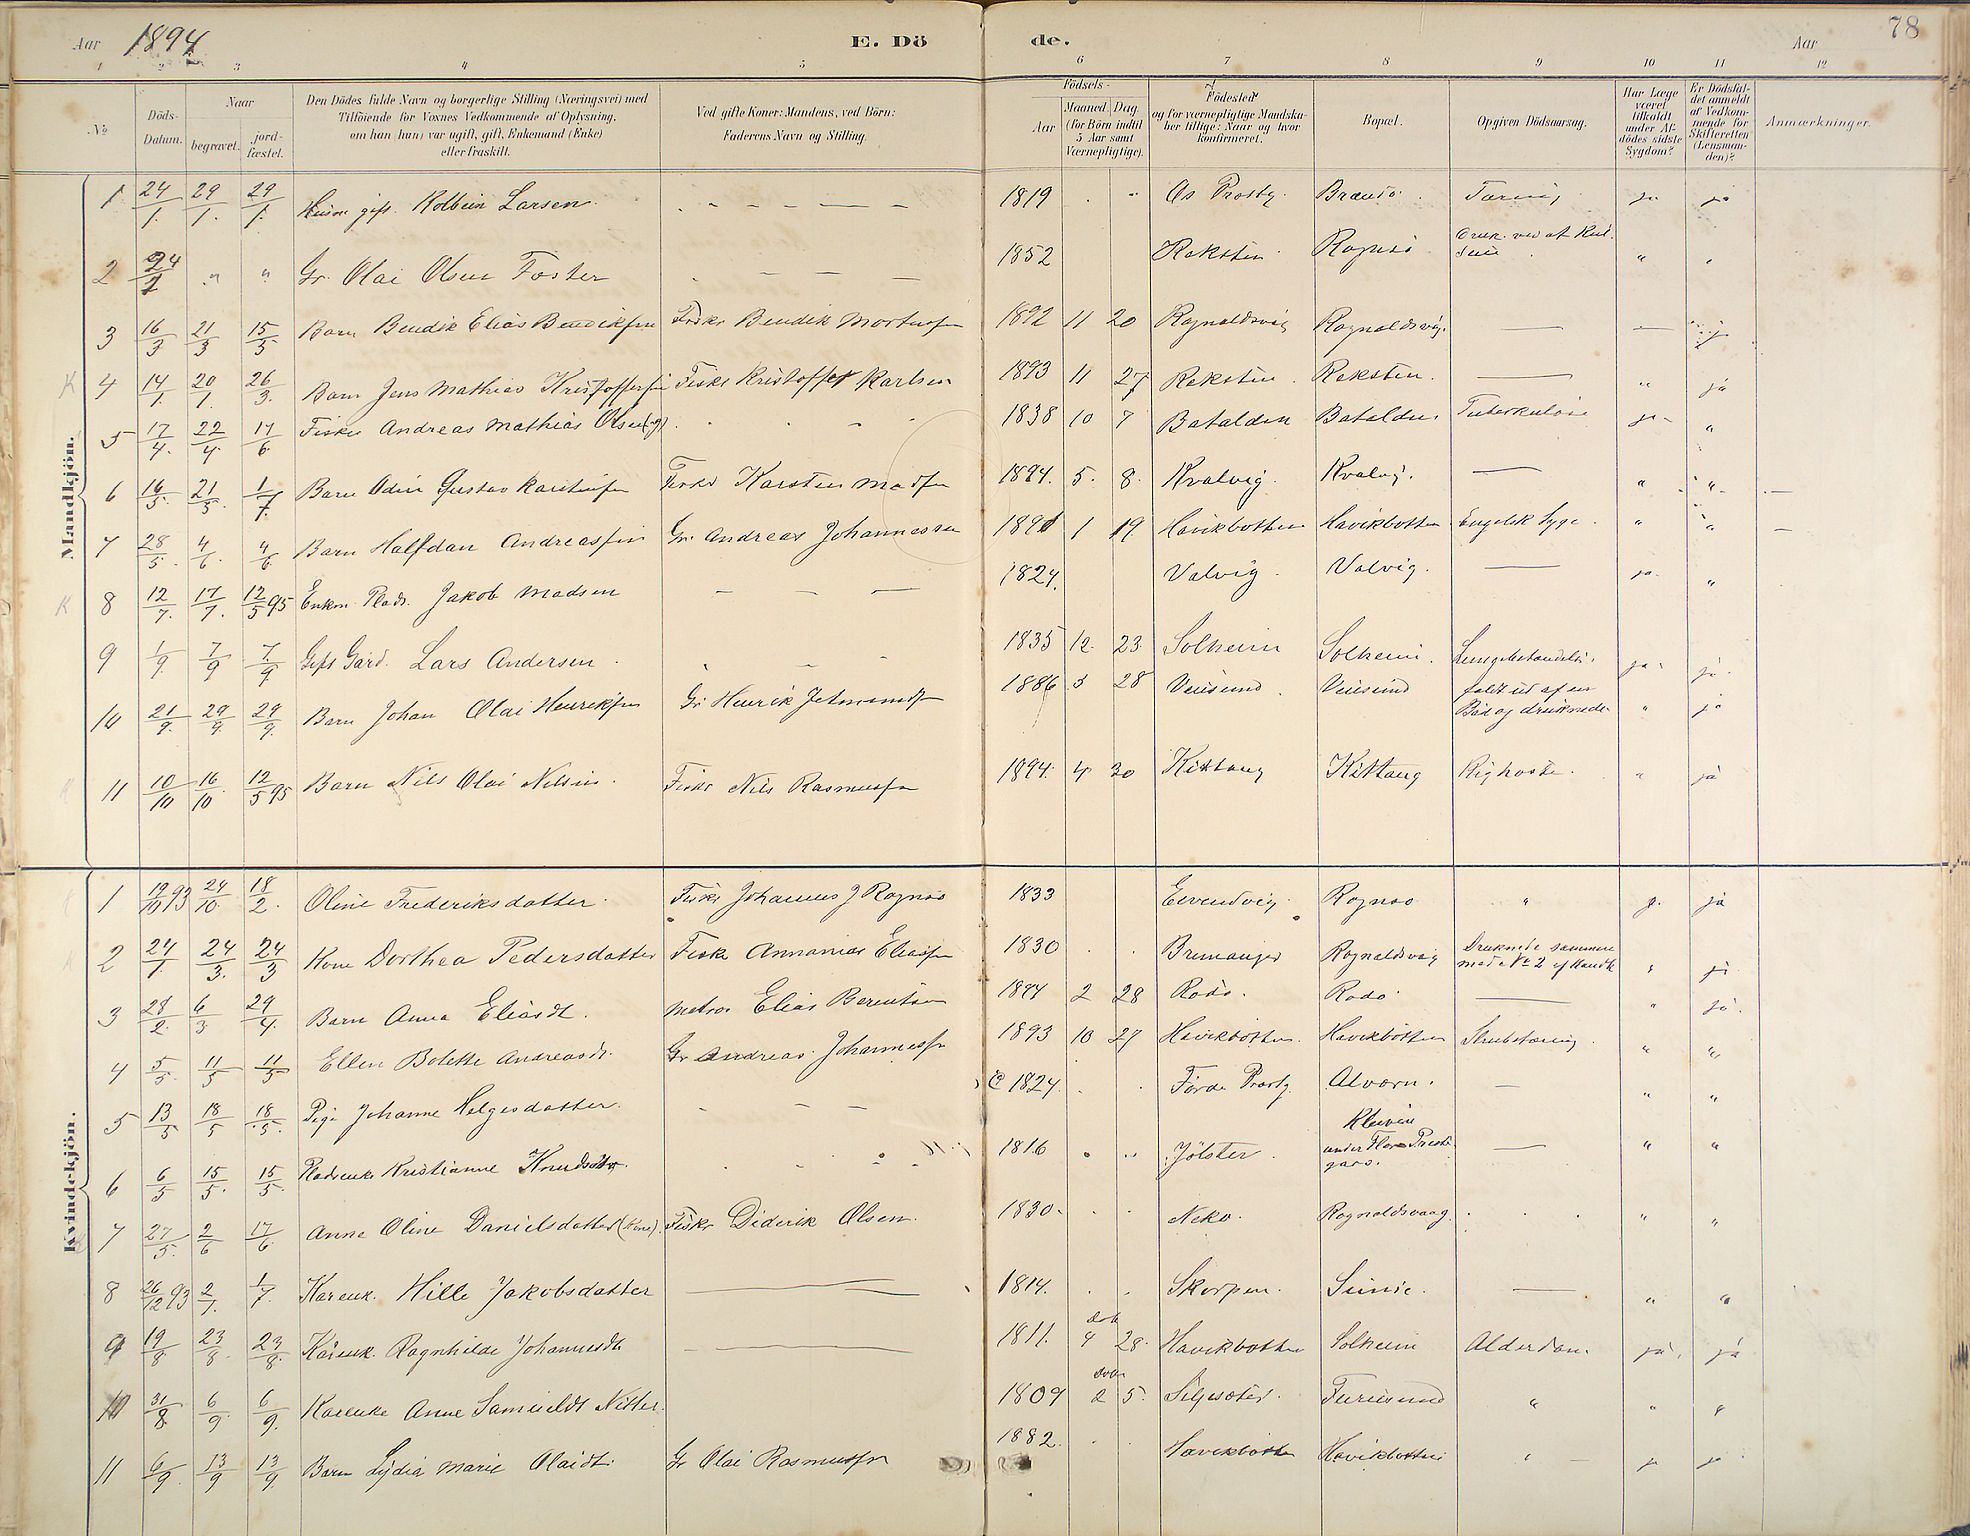 Aar 1894 E. Dö de. Aar 78
1 2 3 4 5 6 7 8 9 10 11 12
No. Döds-Datum. Naar begravet. jord-fæstet.
Den Dödes fulde Navn og borgerlige Stilling (Næringsvei) med
Tilföiende for Voxnes Vedkommende af Oplysning,
om han (hun) var ugift, gift, Enkemand (Enke)
eller fraskilt.
Ved gifte Koner: Mandens, ved Börn:
Faderens Navn og Stilling.
Födsels-
Aar Maaned. Dag.
(for Börn indtil
5 Aar samt
Værnepligtige).
Födested
og for værnepligtige Mandska-
ber tillige: Naar og hvor
konfirmeret.
Bopæl.
Opgiven Dödsaarsag.
Har Læge
været
tilkaldt
under Af-
dödes sidste
Sygdom?
Er Dödsfal-
det anmeldt
af Vedkom-
mende for
Skifteretten
(Lensman-
den)?
Anmærkninger.
Mandkjön.
1 24/1. 29/1. 29/1. gift. Kolbein Larsen 1819 Os Prestg. Brandsö ja ja
2 24/1 " " Gr. Olai Olsen Foster 1852 Reksten Rognsö " "
3 16/3 21/3 15/5 Barn Bendik Elias Bendiksen Fisker Bendik Mortensen 1892 11 20 Rognaldsvig Rognaldsvig. — — j
K 4 14/1. 20/1. 26/3. Barn Jens Mathias Kristoffersen Fisker Kristoffer Karlsen 1893 11 27 Reksten. Reksten. — " ja
5 17/4. 22/4. 17/6. Fisker Andreas Mathias Olsen (g) 1838 10 7 Batalden Batalden Tuberkulose ja "
6 16/5. 21/5. 1/7. Barn Odin Gustav Karstensen Fisker Karsten Madsen 1894. 5. 8. Kvalvig. Kvalvig. — " "
7 28/5. 4/6. 4/6 Barn Halfdan Andreassen Gr. Andreas Johannessen 1 19 Havikbotten Havikbotten Engelsk Syge. " "
K 8 12/7. 17/7. 12/5 95 Enkm. Plads. Jakob Madsen — — — 1824. Valvig. Valvig. — ja. "
9 1/9. 7/9 7/9. Gift Gård. Lars Andersen. 1835 12. 23 Solheim Solheim. Lungebetændelse. ja. ja.
10 21/9. 29/9. 29/9. Barn Johan Olai Henriksen Gr Henrik Jetmundsen 1886 3 28 Veiesund. Veiesund faldt ud af en
Båd og druknede. " ja
11 10/10 16/10 12/5 95 Barn Nils Olai Nilsen. Fisker Nils Rasmussen 1894. 4. 30 Kittang Kittang Kighoste. " ja
Kvindekjön.
1 19/10 93 24/10. 18/2. Oline Frederiksdatter. Fisker Johannes J Rognsö 1833 Eivindvig. Rognsö " ja
2 24/1 24/3. 24/3 Kone Dorthea Pedersdatter Fisker Annanias Eliassen 1830 Bremanger Rognaldsvåg Druknede sammen
med No 2 af Mandk " ja
3 28/2. 6/3 29/4. Barn Anna Eliasdt. Matros Elias Berentsen 1894 2 28 Rödö. Rödö — " ja.
4 5/5. 11/5 11/5 Ellen Bolette Andreasdt. Gr Andreas Johannessen 1893 10 27 Havikbotten. Havikbotten Strubetæring " "
5 13/5 18/5 18/5. Pige Johanne Helgesdatter. — — — 1824. Förde Prestg. Alværn. — " "
6 6/5 15/5. 15/5. Kristianne Knudsdtr. 1816 Jölster. Kleiven
under Florö Preste
gård. — " "
7 27/5. 2/6 17/6 Anne Oline Danielsdatter (Kone). Fisker Diderik Olsen. 1830. Nekö. Rognaldsvaag. " "
8 26/12 93 2/1. 1/7. Kårenk. Hille Jakobsdatter — 1814. Skorpen. — " "
9 19/8 23/8. 23/8. Kårenk. Ragnhilde Johannesdt. — 1811. döbt 4 28. Havikbotten Solheim Alderdom. ja. ja
10 31/8. 6/9. 6/9. Kårenke Anne Samueldt Nitter. 1809 2 5. Furesund " " "
11 6/9. 13/9 13/9. Barn Lydia Marie Olaidt. Gr Olai Rasmussen 1882. Havikbotten Havikbotten " — ja ja